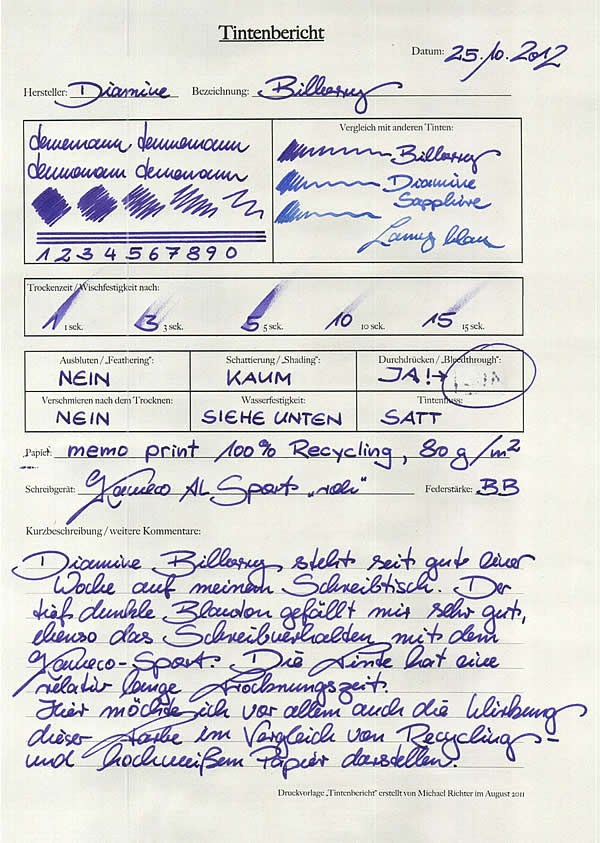 Tintenbericht
Datum: 25.10.2012
Hersteller: Diamine Bezeichnung: Bilberry
Vergleich mit anderen Tinten:
dennemann dennemann
dennemann dennemann
1 2 3 4 5 6 7 8 9 0
Bilberry
Diamine
Sapphire
Lamy blau
Trockenzeit / Wischfestigkeit nach:
1 1 sek. 3 3 sek. 5 5 sek. 10 10 sek. 15 15 sek.
Ausbluten / „Feathering": Schattierung / „Shading": Durchdrücken / „Bleedthrough":
NEIN KAUM JA! →
Verschmieren nach dem Trocknen: Wasserfestigkeit: Tintenfluss:
NEIN SIEHE UNTEN SATT
Papier: memo print 100% Recycling, 80 g/m²
Schreibgerät: Kaweco AL Sport „roh" Federstärke: BB
Kurzbeschreibung / weitere Kommentare:
Diamine Bilberry steht seit gute einer
Woche auf meinem Schreibtisch. Der
tief dunkle Blauton gefällt mir sehr gut,
ebenso das Schreibverhalten mit dem
Kaweco-Sport. Die Tinte hat eine
relativ lange Trocknungszeit.
Hier möchte ich vor allem auch die Wirkung
dieser Farbe im Vergleich von Recycling-
und hochweißem Papier darstellen.
Druckvorlage „Tintenbericht" erstellt von Michael Richter im August 2011